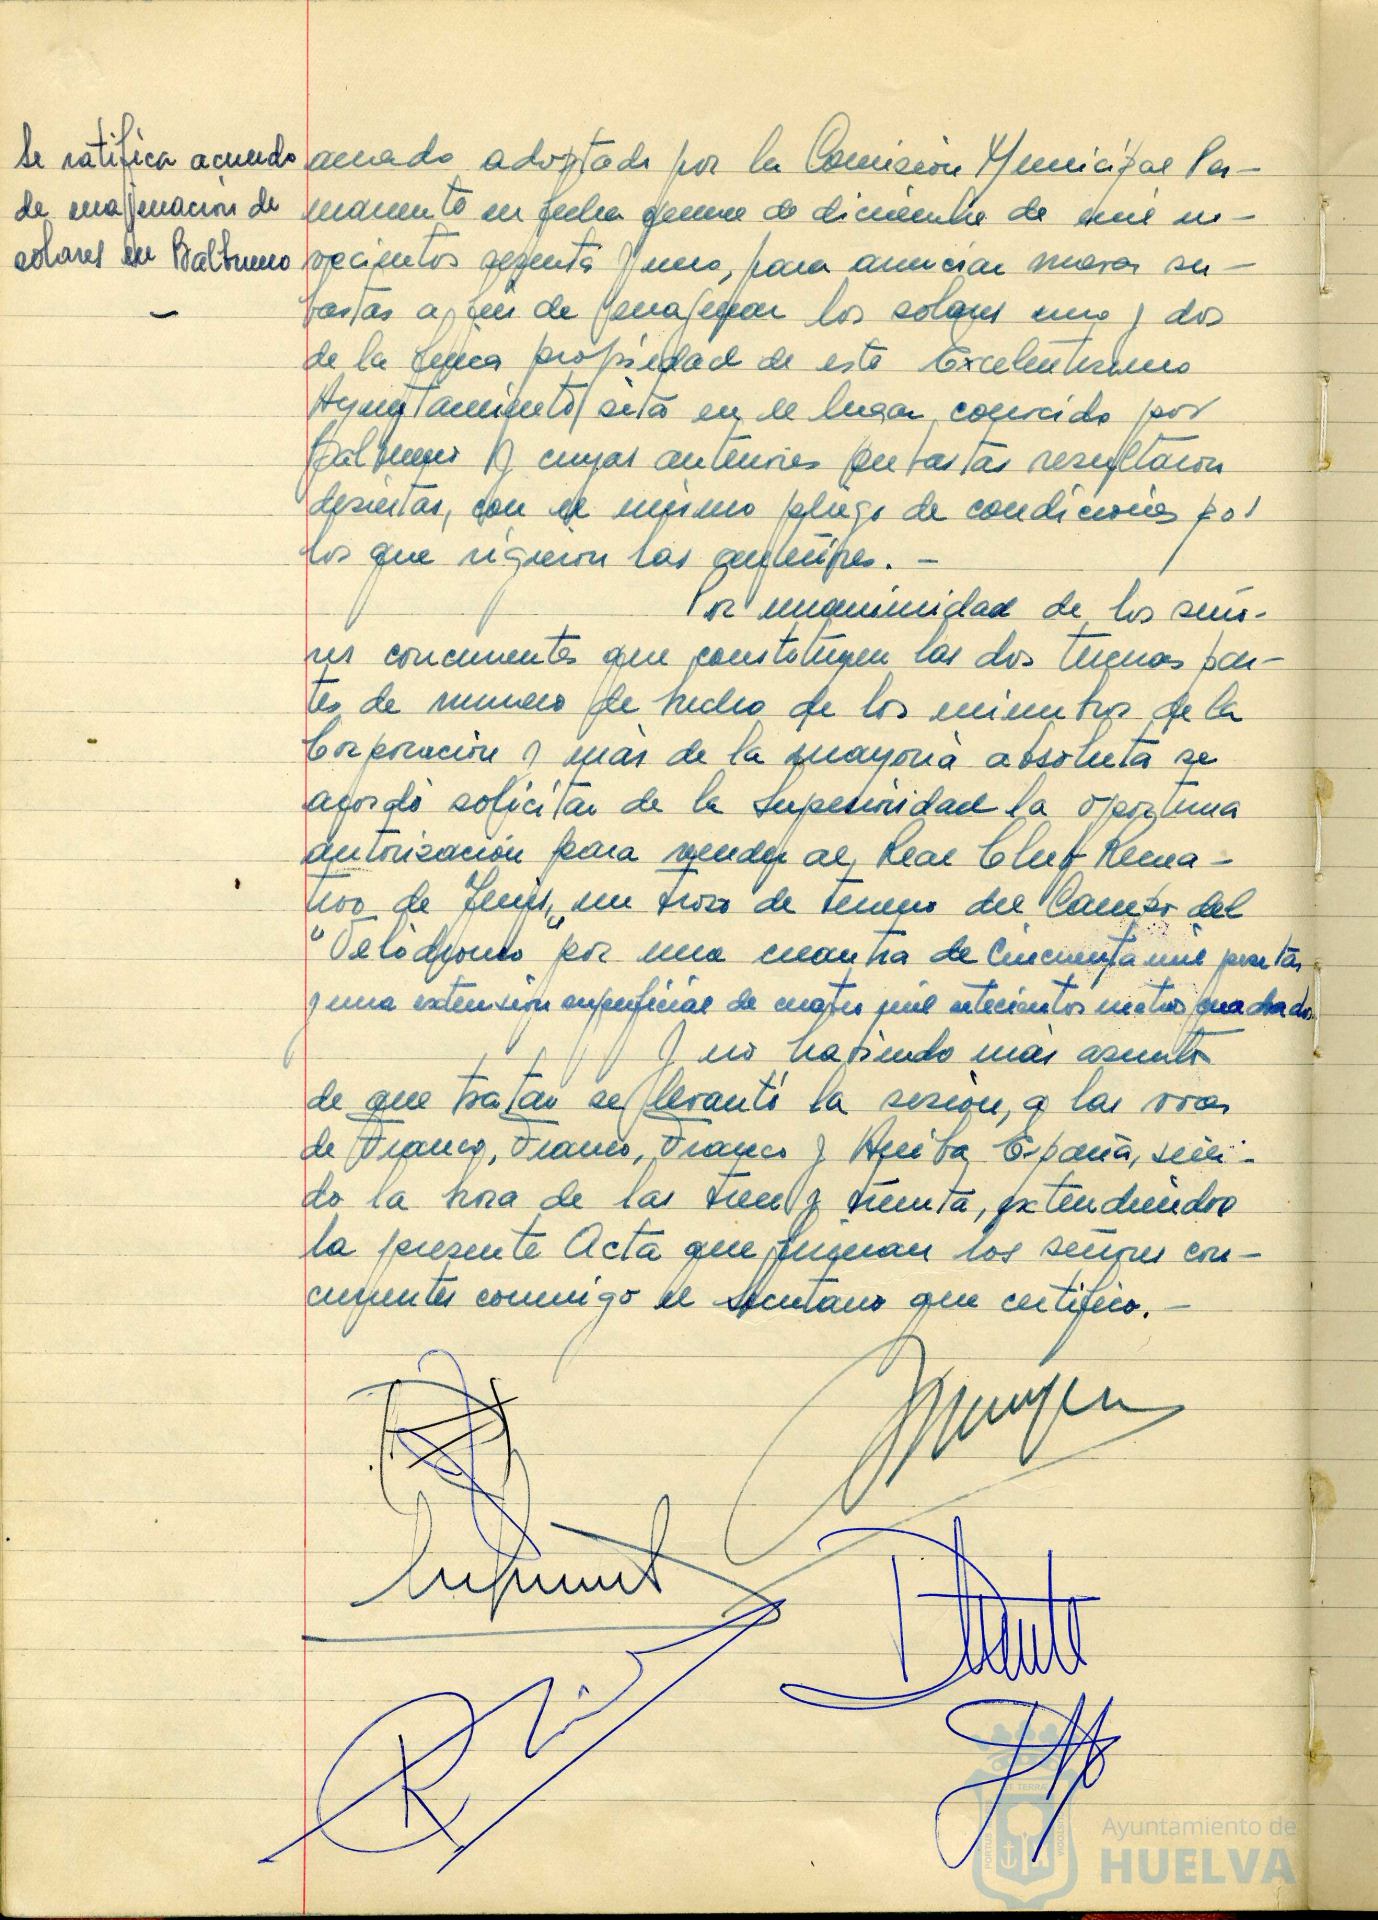 Se ratifica acuerdo
de enajenación de
solares en Balbueno
acuerdo adoptado por la Comisión Municipal Per-
manente en fecha quince de diciembre de mil no-
vecientos sesenta y uno, para anunciar nuevas su-
bastas a fin de enajenar los solares uno y dos
de la finca propiedad de este Excelentísimo
Ayuntamiento sita en el lugar conocido por
Balbueno y cuyas anteriores subastas resultaron
desiertas, con el mismo pliego de condiciones por
los que rigieron las anteriores. -
Por unanimidad de los seño-
res concurrentes que constituyen las dos terceras par-
tes de número de hecho de los miembros de la
Corporación y más de la mayoría absoluta se
acordó solicitar de la Superioridad la oportuna
autorización para vender al Real Club Recrea-
tivo de Tenis, un trozo de terreno del Campo del
"Velódromo" por una cuantía de cincuenta mil pesetas
y una extensión superficial de cuatro mil setecientos metros cuadrados
Y no habiendo más asuntos
de que tratar se levantó la sesión, a las voces
de Franco, Franco, Franco y Arriba España, sien-
do la hora de las trece y treinta, extendiéndose
la presente Acta que firman los señores con-
currentes conmigo el Secretario que certifico. -
Ayuntamiento de
HUELVA